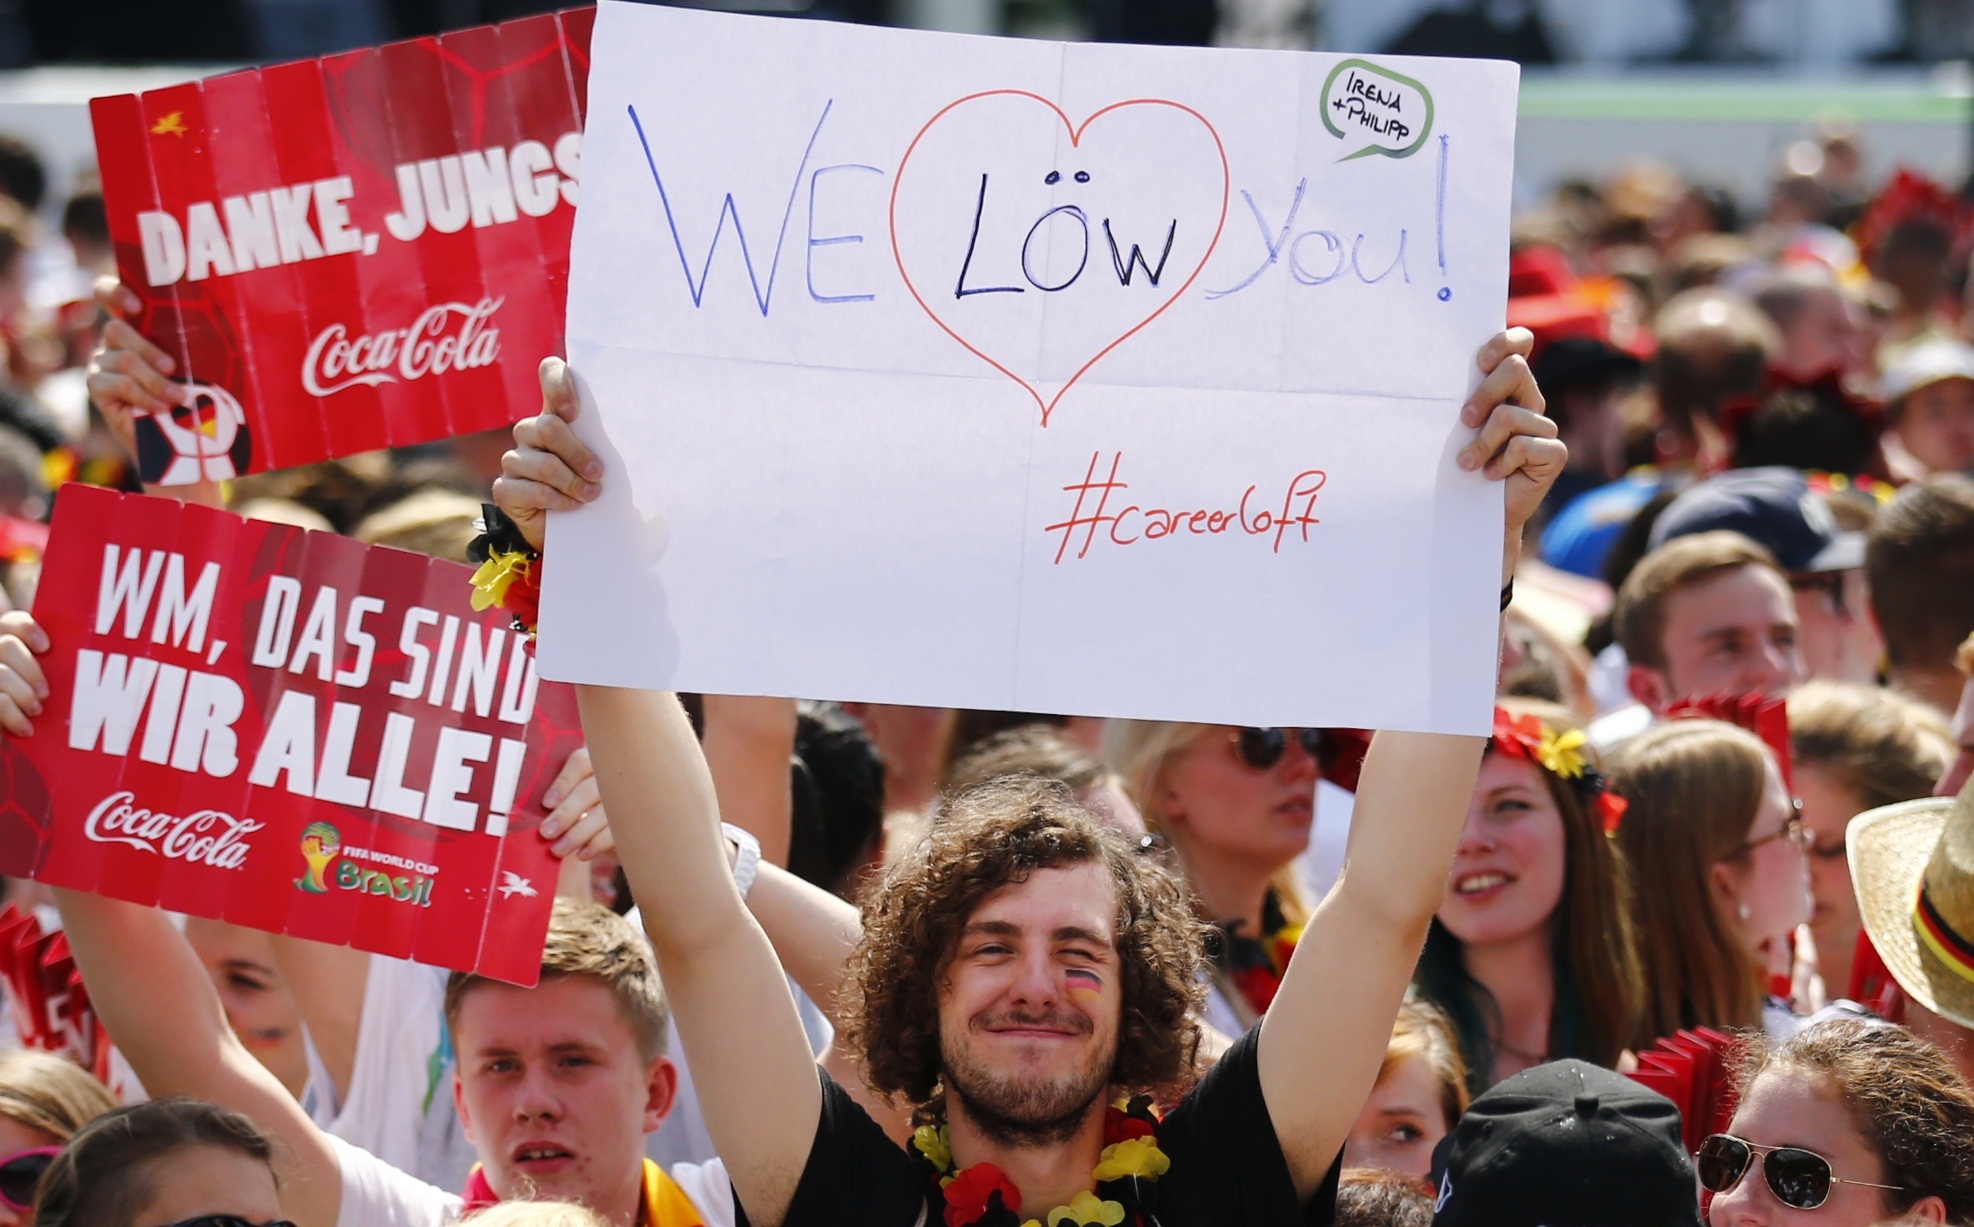 DANKE, JUNGS
Coca-Cola
WE LÖW YOU!
IRENA
+PHILIPP
#careerloft
WM, DAS SIND
WIR ALLE!
Coca-Cola
FIFA WORLD CUP
Brasil